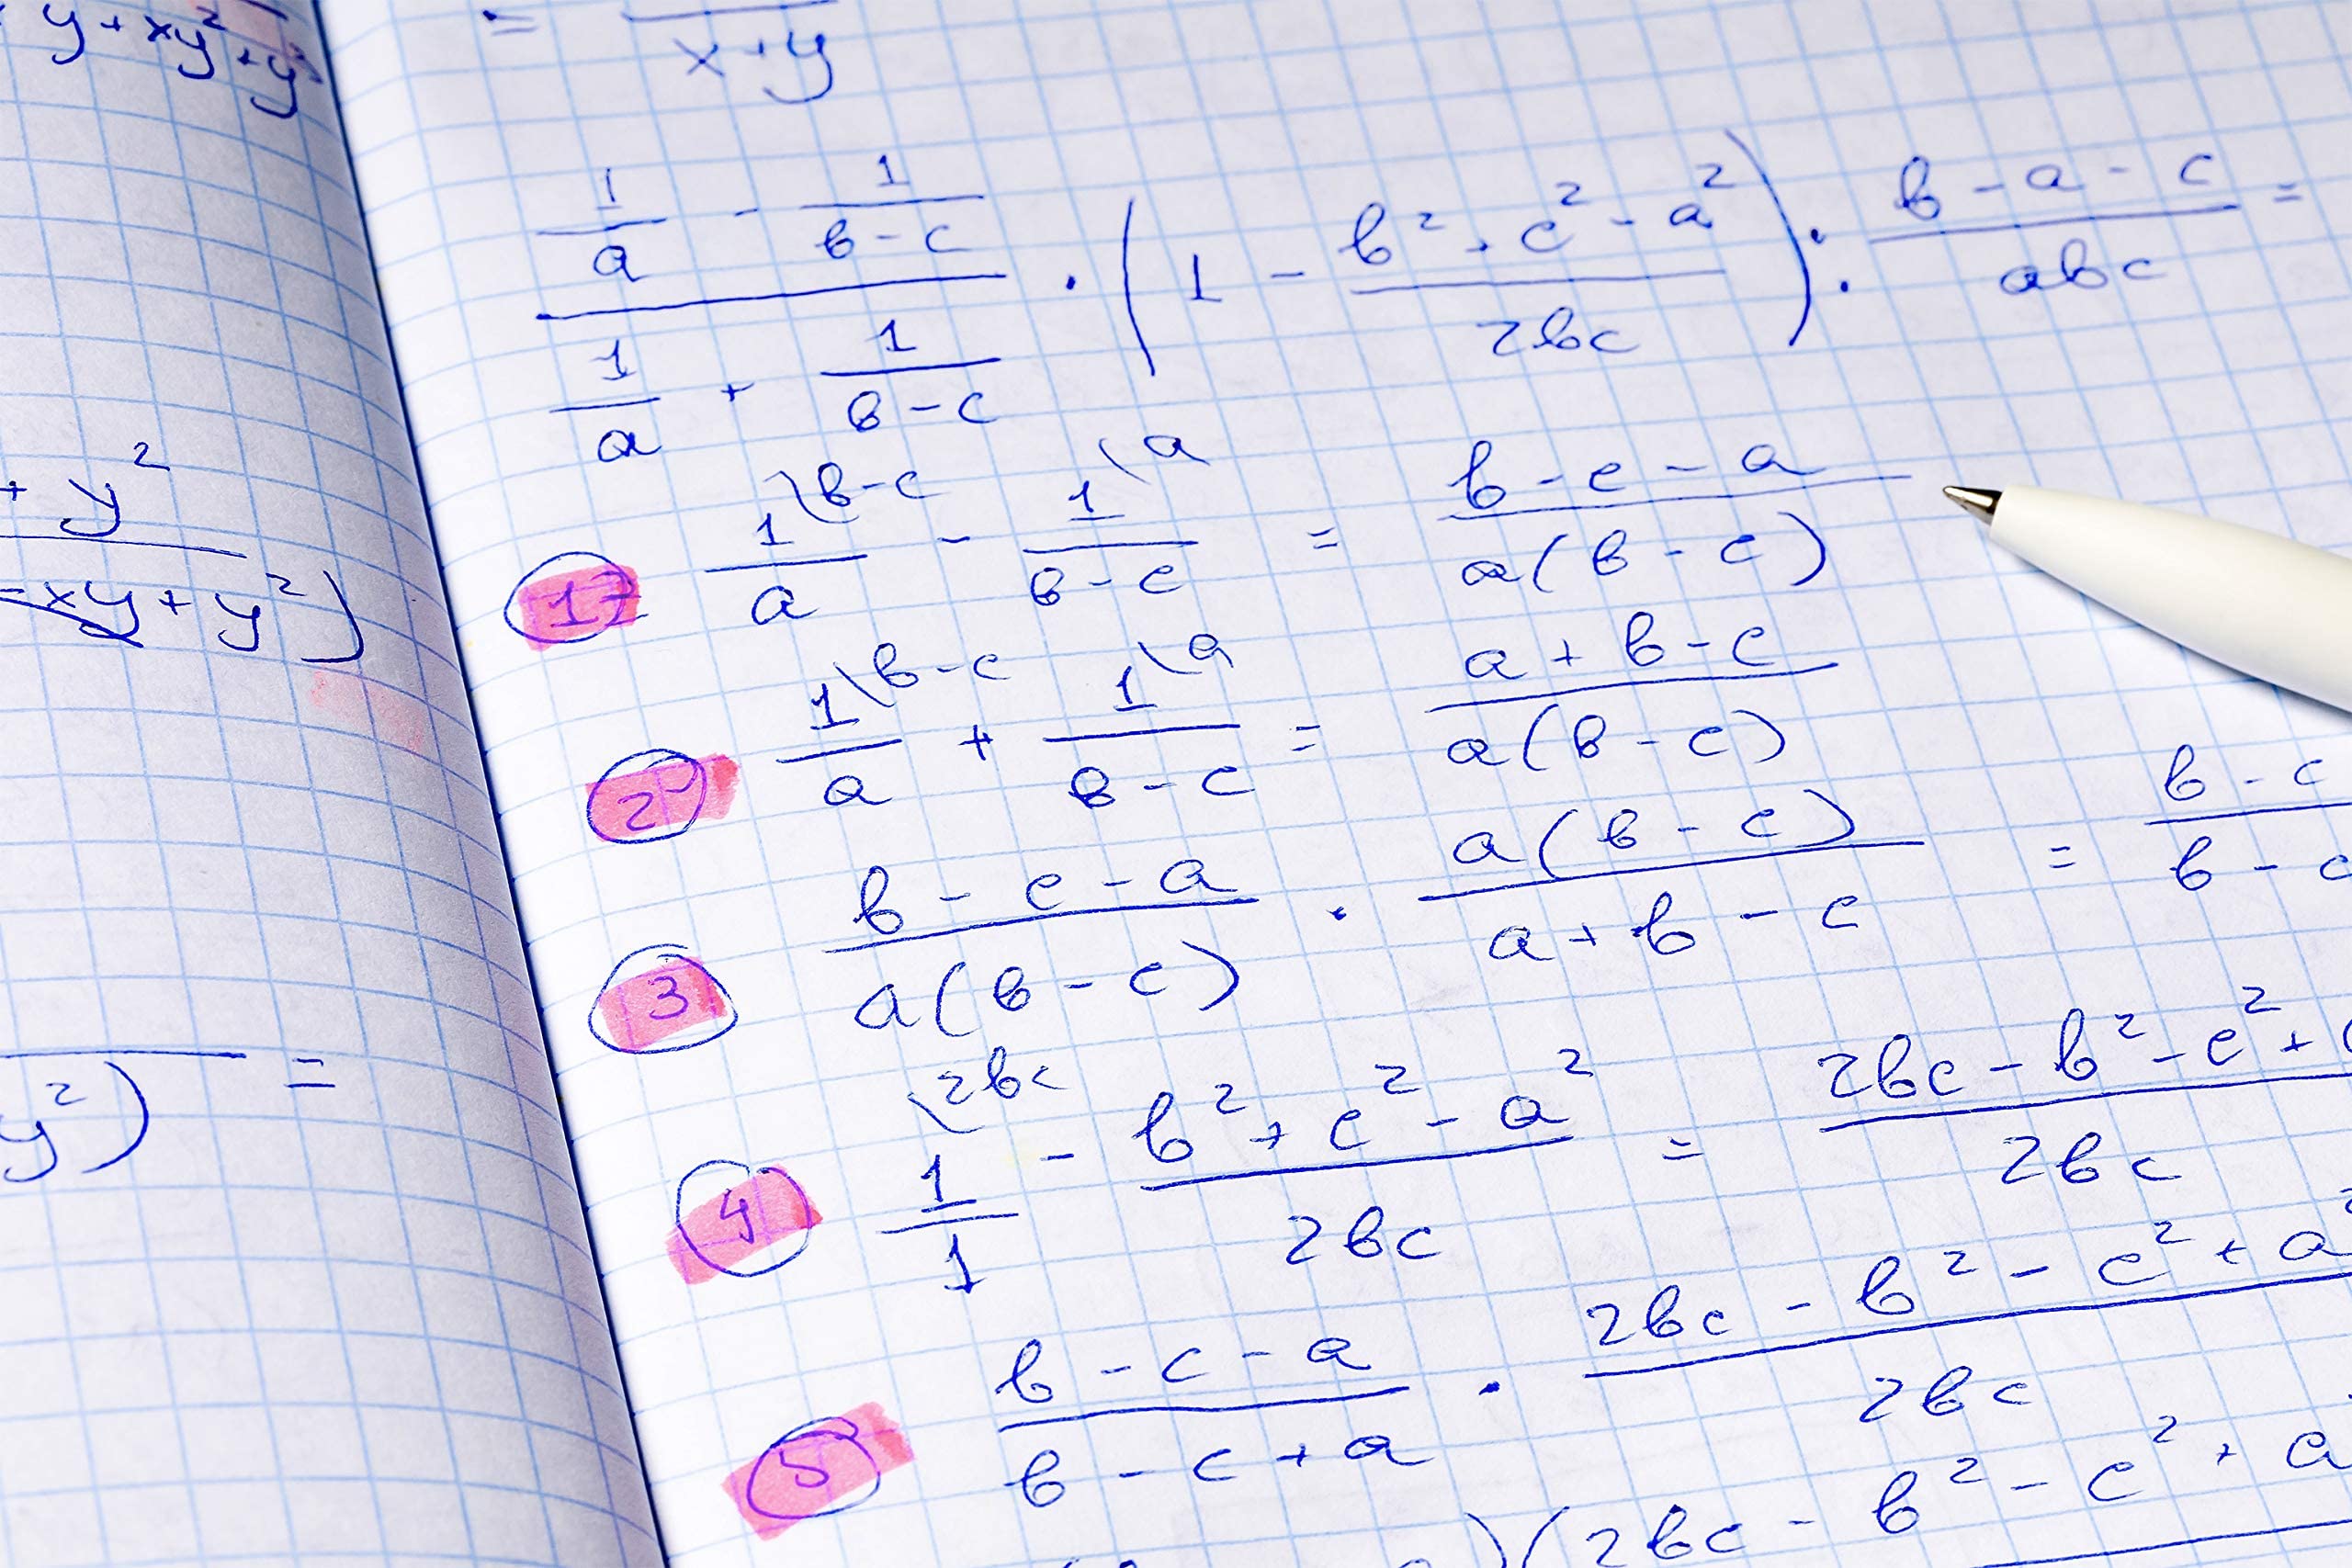 y + xy² + y³
+ y²
- xy + y²)
y²) =
= / (x + y)
(1/a - 1/(b - c)) / (1/a + 1/(b - c)) · (1 - (b² + c² - a²)/(2bc)) : (b - a - c)/(abc) =
1) 1\b-c / a - 1\a / (b - c) = (b - c - a) / (a(b - c))
2) 1\b-c / a + 1\a / (b - c) = (a + b - c) / (a(b - c))
3 (b - c - a) / (a(b - c)) · (a(b - c)) / (a + b - c) = (b - c) / (b - c)
4 1\2bc / 1 - (b² + c² - a²) / (2bc) = (2bc - b² - c² + ) / (2bc)
5 (b - c - a) / (b - c + a) · (2bc - b² - c² + a²) / (2bc)
)(2bc - b² - c² + a